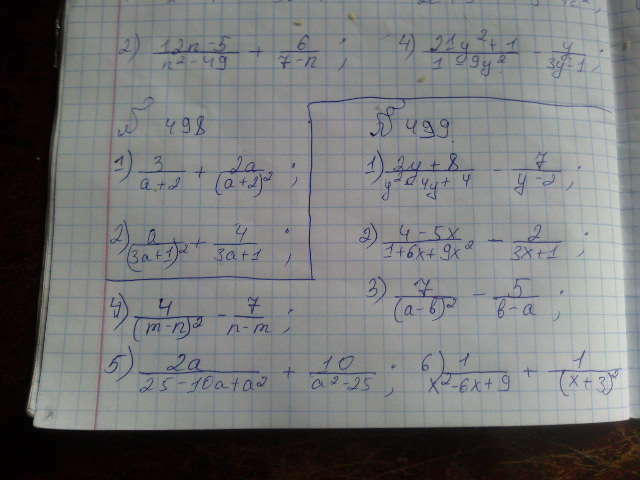 2) (12n-5)/(n²-49) + 6/(7-n) ; 4) (21y²+1)/(1-9y²) - y/(3y-1) ;
№ 498
1) 3/(a+2) + 2a/(a+2)² ;
2) a/(3a+1)² + 4/(3a+1) ;
№ 499
1) (3y+8)/(y²-4y+4) - 7/(y-2) ;
2) (4-5x)/(1+6x+9x²) - 2/(3x+1) ;
3) 7/(a-b)² - 5/(b-a) ;
4) 4/(m-n)² - 7/(n-m) ;
5) 2a/(25-10a+a²) + 10/(a²-25) ; 6) 1/(x²-6x+9) + 1/(x+3)²